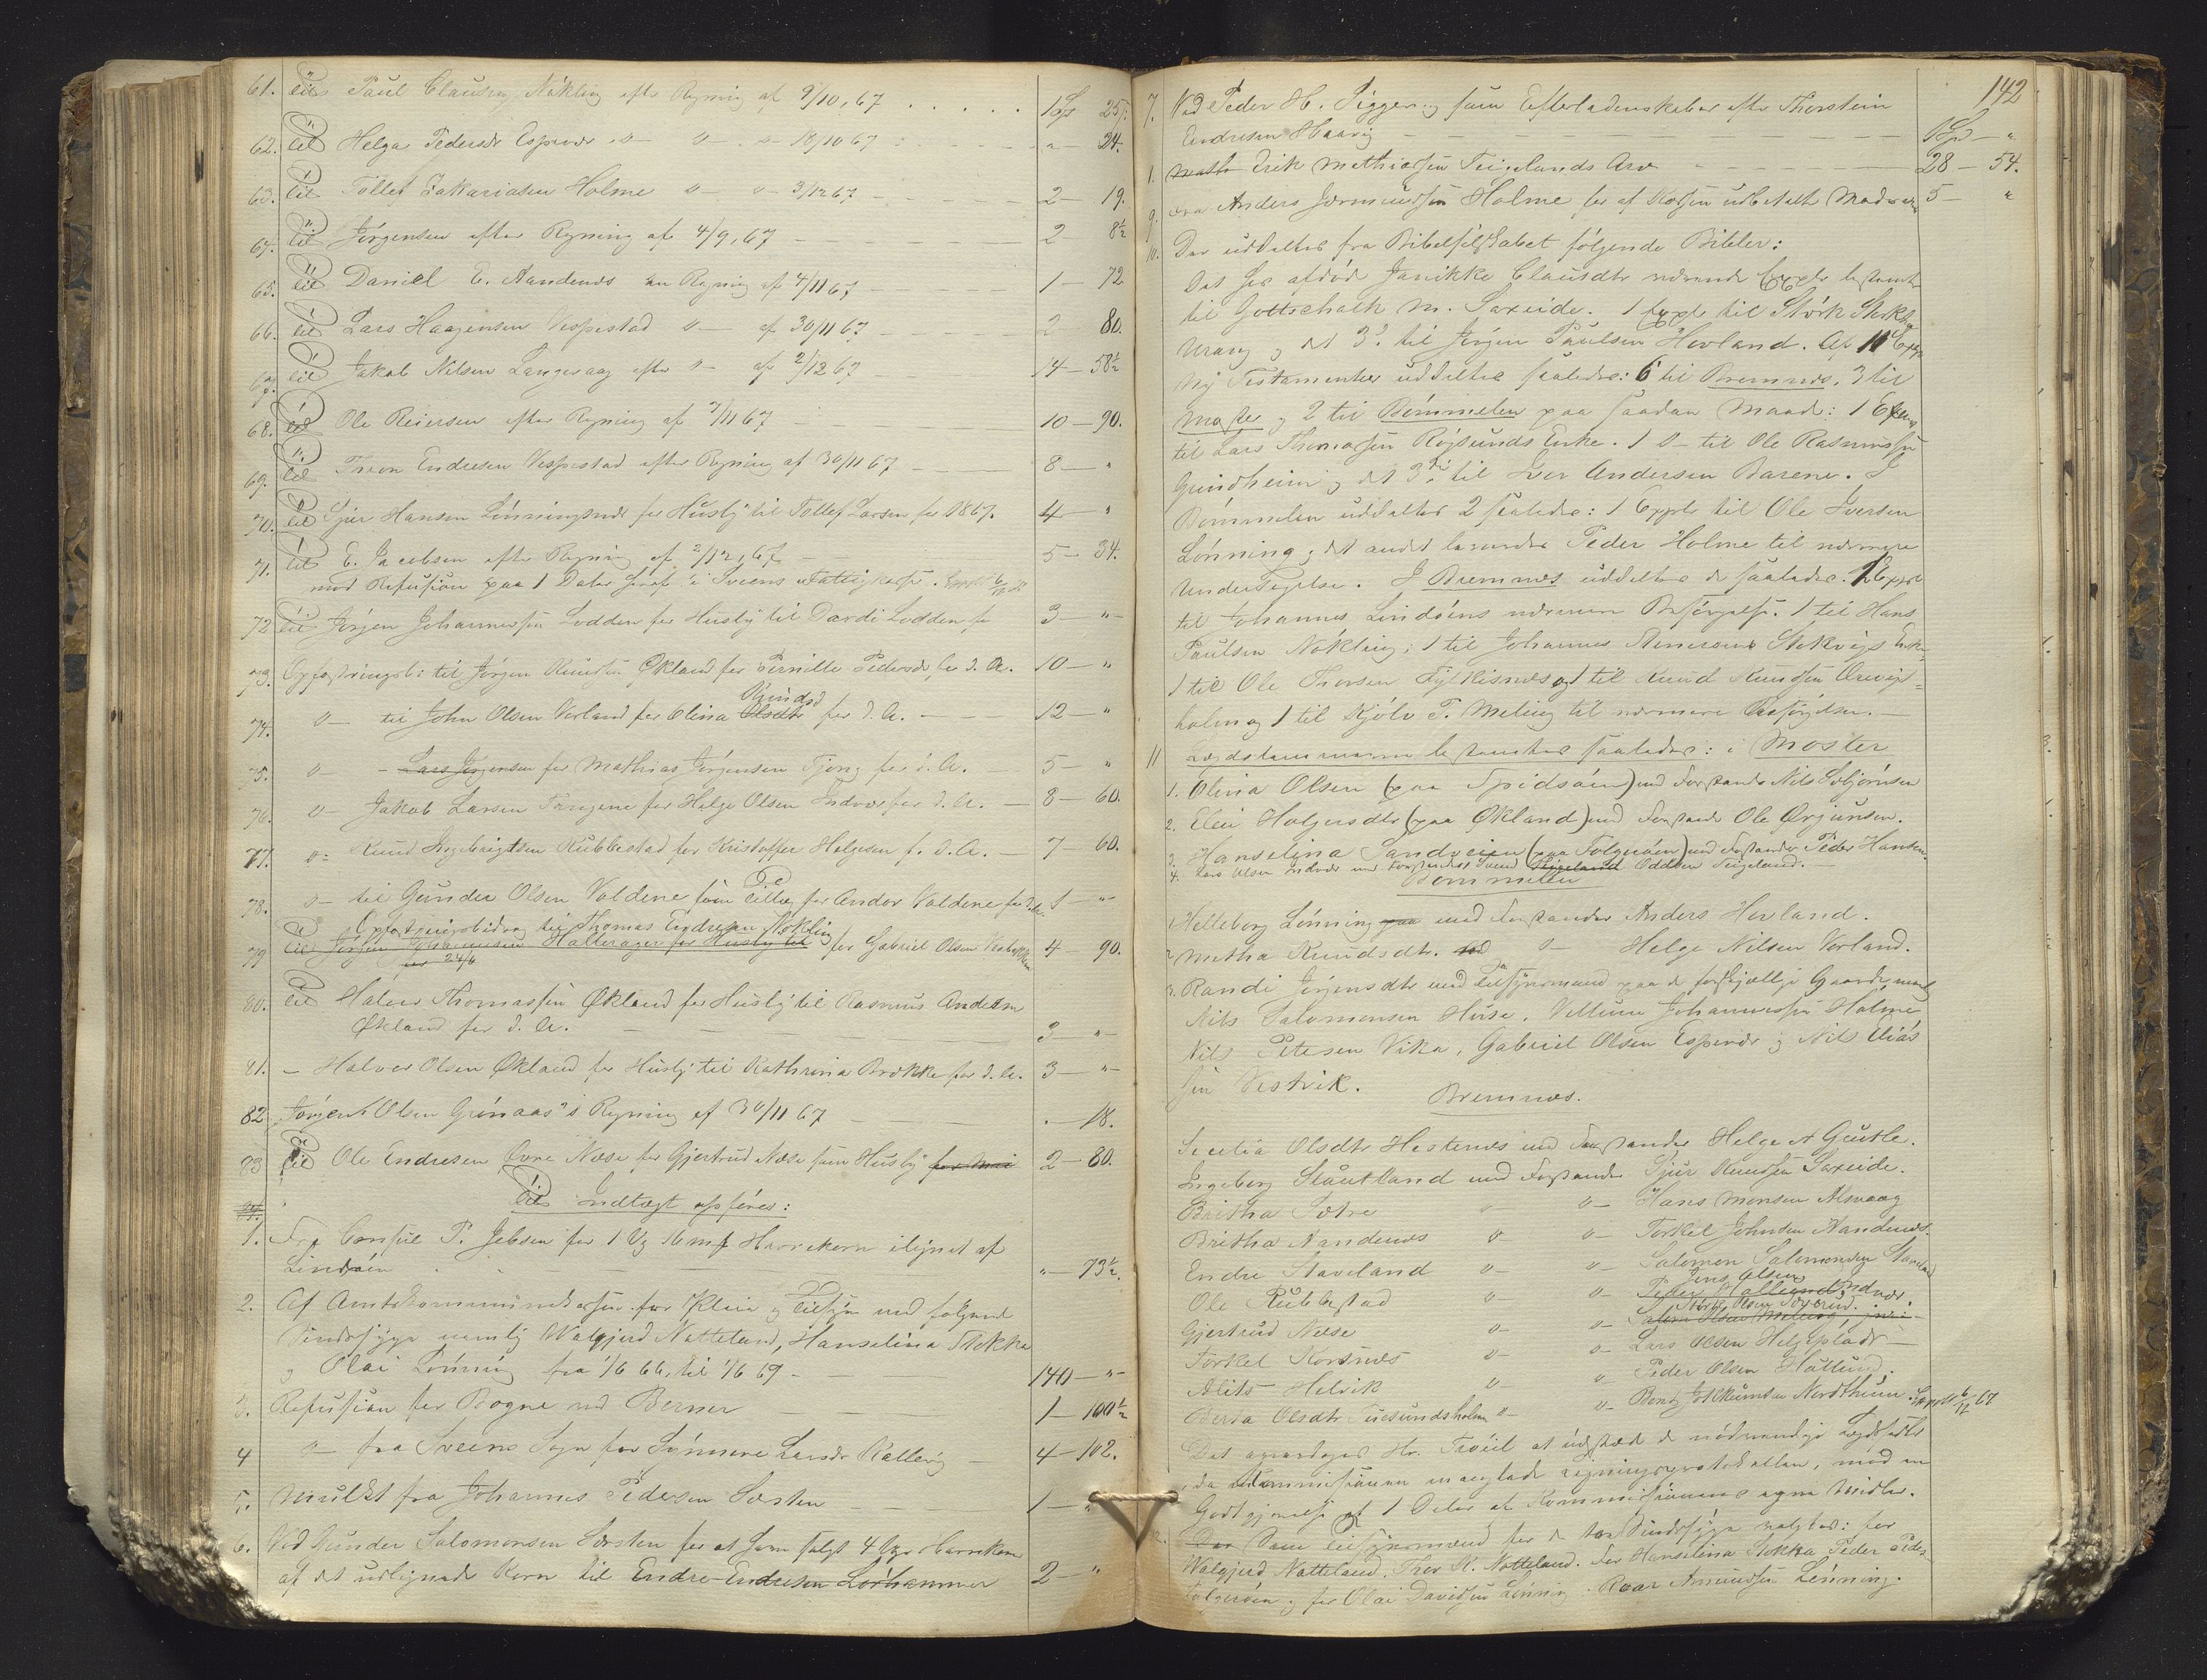 61. til Paul Clausen Nökling efter Regning af 9/10, 67 . . . . . 1 Spd 25 s.
62. til Helga Pedersdr Espevær o- o- o- 18/10 67 . . . . " - 24.
63. til Tollef Zakariasen Holme o- o- 3/12 67 - - - - 2 - 19.
64. til Jörgensen efter Regning af 4/9, 67 - - - - 2 8½
65. til Daniel E. Aandenæs en Regning af 4/11 67 - - - - 1 - 72
66. til Lars Haagensen Vespestad o- af 30/11 67 - - - 2 80.
67. til Jakob Nilsen Langevaag efter o- af 2/12 67 - - - 14 - 58½
68. til Ole Reiersen efter Regning af 7/11 67 - - - 10 - 90.
69. til Thron Endresen Vespestad efter Regning af 30/11 67 - - 8 - "
70. til Sjur Hansen Lönningsnæs for Husly til Tollef Larsen for 1867. 4 - "
71. til E. Jacobsen efter Regning af 2/12, 67 - - 5 - 34.
mod Refusion paa 1 Daler heraf i Sveens Fattigkasse.
72 til Jörgen Johannessen Lodden for Husly til Dardi Lodden for 3 - " -
73. Opfostringsb: til Jörgen Knudsen Økland for Pernille Pedersdr for d. A. 10 - "
Knudsd
74. o- til John Olsen Vorland for Elina Olsdtr for d. A. - - 12 - "
75. o- - Lars Jörgensen for Mathias Jörgensen Tjong for d. A. - 5 - "
76. o- Jakob Larsen Tangene for Helge Olsen Indvær for d. A. - 8 - 60.
77. o: Knud Ingebrigtsen Rubbestad for Kristoffer Helgesen f. d. A. - 7 - 60.
78. o- til Gunder Olsen Valdene som Tillæg for Andor Valdene for d. A. 1 - " -
Opfostringsbidrag til Thomas Endresen Nökling
79 til Jörgen Johannesen Hallerager for Husly til for Gabriel Olsen 4 - 90.
for 24/6
80. til Halvor Thomassen Økland for Husly til Rasmus Andersen
Økland for d. A. - - - 3 - " -
81. - Halvor Olsen Økland for Husly til Kathrina Brekke for d. A. 3 - " -
82. Jörgen Olsen Grönaas's Regning af 30/11 67 - - . - 18.
83 til Ole Endresen Övre Næse for Gjertrud Næse som Husly for Mai 2 - 80.
84. Til Indtægt opföres:
1. Fra Consul P. Jebsen for 1 Vg 16 mk Havrekorn ilignet af
Lindöen . - - - " - 73½.
2. Af Amtskommunekassen for Pleie og Tilsyn med folgende
Sindssyge nemlig Walgjerd Natteland, Hanselina Stokka
og Olai Lönning fra 1/6 66, til 1/6 67 - - - 140 - " -
3. Refusion for Bogne ved Berner - - - 1 - 100½
4 o- fra Sveens Sogn for Synneve Larsdr Kallevig - 4 - 102.
5. Mulkt fra Johannes Pedersen Sörsten - - - 1 - "
6. Ved Gunder Salomonsen Sörsten for at have solgt 4 Vger Havrekorn
af det udlignede Korn til Endre Endresen Lörhammer 2 - "
142
7. Ved Peder H. Siggervig som Efterladenskaber efter Thorstein
Endresen Haavig - - - - - Spd - "
1. Math Erik Mathiassen Teigelands Arv - - - - 28 - 54.
9. Fra Anders Jermundsen Holme for af Kassen udbetalt Madvarer 5 - "
10. Der uddeltes fra Bibelselskabet fölgende Bibler:
Det hos afdöde Janikke Clausdtr værende Expl. bestemtes
til Gottschalk M. Saxeide. 1 Expl til Störk Störks.
Urang og det 3die til Jörgen Paulsen Hovland. Af 11 Expl
Ny Testamenter uddeltes saaledes: 6 til Bremnes, 3 til
Moster og 2 til Bömmelen paa saadan Maade: 1 Expl
til Lars Thomassen Röjsunds Enke. 1 o- til Ole Rasmussen
Grindheim og det 3die til Iver Andersen Barene. I
Bömmelen uddeltes 2 saaledes: 1 Expl til Ole Iversen
Lönning og det andet leverdes Peder Holme til nærmere
Undersögelse. I Bremnes uddeltes de saaledes. 1 Expl
til Johannes Lindöens nærmere Besörgelse. 1 til Hans
Paulsen Nökling; 1 til Johannes Stokvigs Enke;
1 til Ole Thorsen Fylkisnæs og 1 til Knud Knudsen
holm og 1 til Kjölv T. Meling til nærmere Besörgelse.
11 Lægdslemmerne bestemtes saaledes: i Moster
1. Olina Olsen (paa Spidsöen) med Forstander Nils Esbjörnsen
2. Eli Holgersdtr (paa Økland) med Forstander Ole Örjansen.
3. Hanselina Sandveien (paa Folgeröen) med Forstander Peder Hansen
4. Lars Olsen Indvær med Forstander Svend Teigeland Oddsen Teigeland.
Bömmelen
1. Helleborg Lönning paa med Forstander Anders Hovland.
2. Metha Knudsdtr. ved o- Helge Nilsen Vorland.
3. Randi Jörgensdtr med Tilsynsmænd paa de forskjellige Gaarde, nemlig
Nils Salomonsen Huse, Villum Johannessen Holme
Nils Petersen Vika, Gabriel Olsen Espevær og Nils Elias
sen Vestvik.
Bremnæs.
Sicelia Olsdtr Hestenæs med Forstander Helge A Gjutle.
Ingeborg Stautland med Forstander Sjur Knudsen Saxeide.
Britha Sætre o- o- Hans Monsen Alsvaag
Britha Aandenæs o- o- Torkel Johnsen Aandenæs.
Endre Staveland o- o- Salomon Salomonsen Staveland
Jens Olsen
Ole Rubbestad o- o- Peder Hallesund Indvær
Gjertrud Næse o- o-
Torkel Korsnæs o- o- Lars Olsen Helgeplads
Alits Helvik o- o- Peder Olsen Hallund.
Berta Olsdtr Tresundsholm o- o- Bent Jokkumsen Nordthun. 6/12 67
Det overdroges Hr. Troeil at udstæde de nödvendige Lægdsedler
da Kommissionen manglede Ligningsprotokollen, mod en
Godtgjörelse af 1 Daler af Kommissionens egne Midler.
12. Der Som Tilsynsmænd for de tre Sindssyge valgtes: for
Walgjerd Natteland, Thor K. Natteland. For Hanselina Stokka Peder Peders.
Folgeröen og for Olai Davidsen Lönning. Roar Amundsen Lönning.